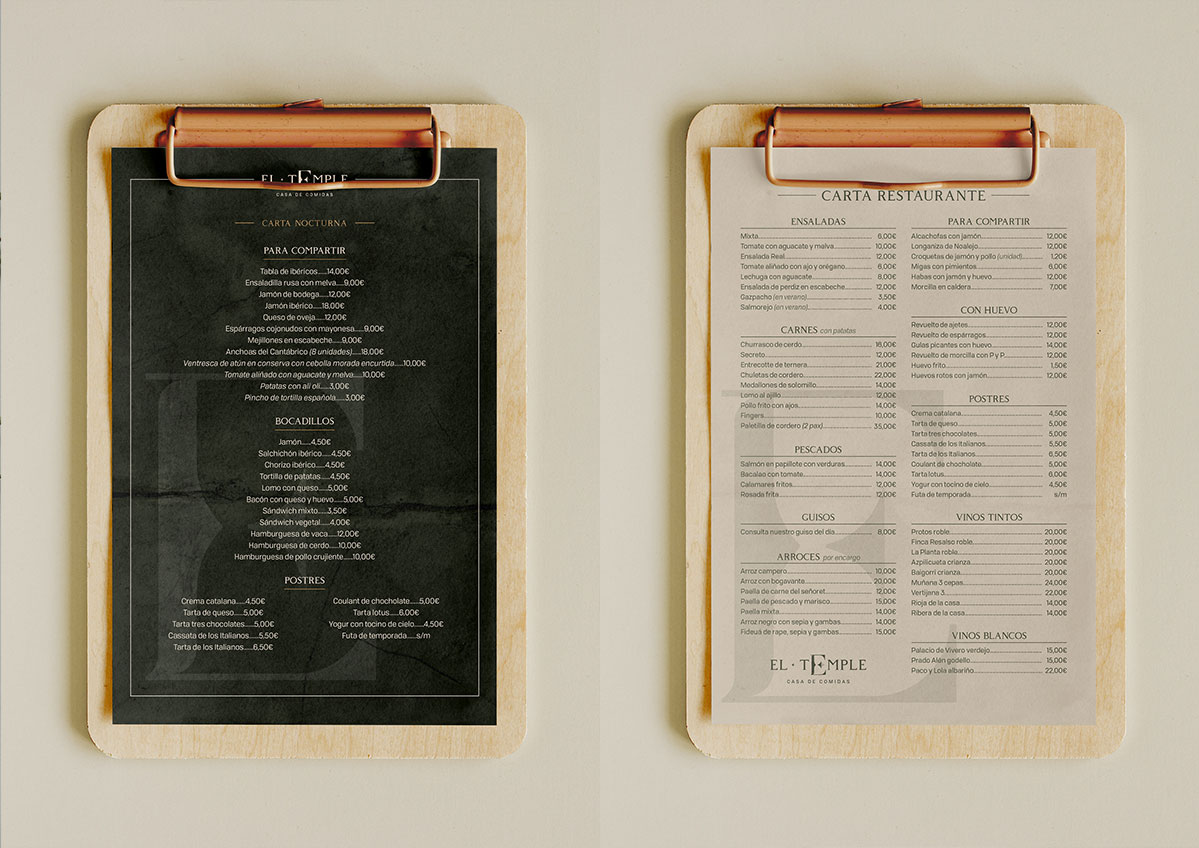 EL · TEMPLE
CASA DE COMIDAS
CARTA NOCTURNA
PARA COMPARTIR
Tabla de ibéricos.....14,00€
Ensaladilla rusa con melva.....9,00€
Jamón de bodega.....12,00€
Jamón ibérico.....18,00€
Queso de oveja.....12,00€
Espárragos cojonudos con mayonesa.....9,00€
Mejillones en escabeche.....9,00€
Anchoas del Cantábrico (8 unidades).....18,00€
Ventresca de atún en conserva con cebolla morada encurtida.....10,00€
Tomate aliñado con aguacate y melva.....10,00€
Patatas con ali oli.....3,00€
Pincho de tortilla española.....3,00€
BOCADILLOS
Jamón.....4,50€
Salchichón ibérico.....4,50€
Chorizo ibérico.....4,50€
Tortilla de patatas.....4,50€
Lomo con queso.....5,00€
Bacón con queso y huevo.....5,00€
Sándwich mixto.....3,50€
Sándwich vegetal.....4,00€
Hamburguesa de vaca.....12,00€
Hamburguesa de cerdo.....10,00€
Hamburguesa de pollo crujiente.....10,00€
POSTRES
Crema catalana.....4,50€
Tarta de queso.....5,00€
Tarta tres chocolates.....5,00€
Cassata de los Italianos.....5,50€
Tarta de los Italianos.....6,50€
Coulant de chocholate.....5,00€
Tarta lotus.....6,00€
Yogur con tocino de cielo.....4,50€
Futa de temporada.....s/m
CARTA RESTAURANTE
ENSALADAS
Mixta 6,00€
Tomate con aguacate y melva 10,00€
Ensalada Real 12,00€
Tomate aliñado con ajo y orégano 6,00€
Lechuga con aguacate 8,00€
Ensalada de perdiz en escabeche 12,00€
Gazpacho (en verano) 3,50€
Salmorejo (en verano) 4,00€
CARNES con patatas
Churrasco de cerdo 18,00€
Secreto 12,00€
Entrecotte de ternera 21,00€
Chuletas de cordero 22,00€
Medallones de solomillo 14,00€
Lomo al ajillo 12,00€
Pollo frito con ajos 14,00€
Fingers 10,00€
Paletilla de cordero (2 pax) 35,00€
PESCADOS
Salmón en papillote con verduras 14,00€
Bacalao con tomate 14,00€
Calamares fritos 12,00€
Rosada frita 12,00€
GUISOS
Consulta nuestro guiso del día 8,00€
ARROCES por encargo
Arroz campero 10,00€
Arroz con bogavante 20,00€
Paella de carne del señoret 12,00€
Paella de pescado y marisco 15,00€
Paella mixta 14,00€
Arroz negro con sepia y gambas 14,00€
Fideuá de rape, sepia y gambas 15,00€
EL · TEMPLE
CASA DE COMIDAS
PARA COMPARTIR
Alcachofas con jamón 12,00€
Longaniza de Noalejo 12,00€
Croquetas de jamón y pollo (unidad) 1,20€
Migas con pimientos 6,00€
Habas con jamón y huevo 12,00€
Morcilla en caldera 7,00€
CON HUEVO
Revuelto de ajetes 12,00€
Revuelto de espárragos 12,00€
Gulas picantes con huevo 14,00€
Revuelto de morcilla con P y P 12,00€
Huevo frito 1,50€
Huevos rotos con jamón 12,00€
POSTRES
Crema catalana 4,50€
Tarta de queso 5,00€
Tarta tres chocolates 5,00€
Cassata de los Italianos 5,50€
Tarta de los Italianos 6,50€
Coulant de chocholate 5,00€
Tarta lotus 6,00€
Yogur con tocino de cielo 4,50€
Futa de temporada s/m
VINOS TINTOS
Protos roble 20,00€
Finca Resalso roble 20,00€
La Planta roble 20,00€
Azpilicueta crianza 20,00€
Baigorri crianza 20,00€
Muñana 3 cepas 24,00€
Vertijana 3 22,00€
Rioja de la casa 14,00€
Ribera de la casa 14,00€
VINOS BLANCOS
Palacio de Vivero verdejo 15,00€
Prado Alén godello 15,00€
Paco y Lola albariño 22,00€